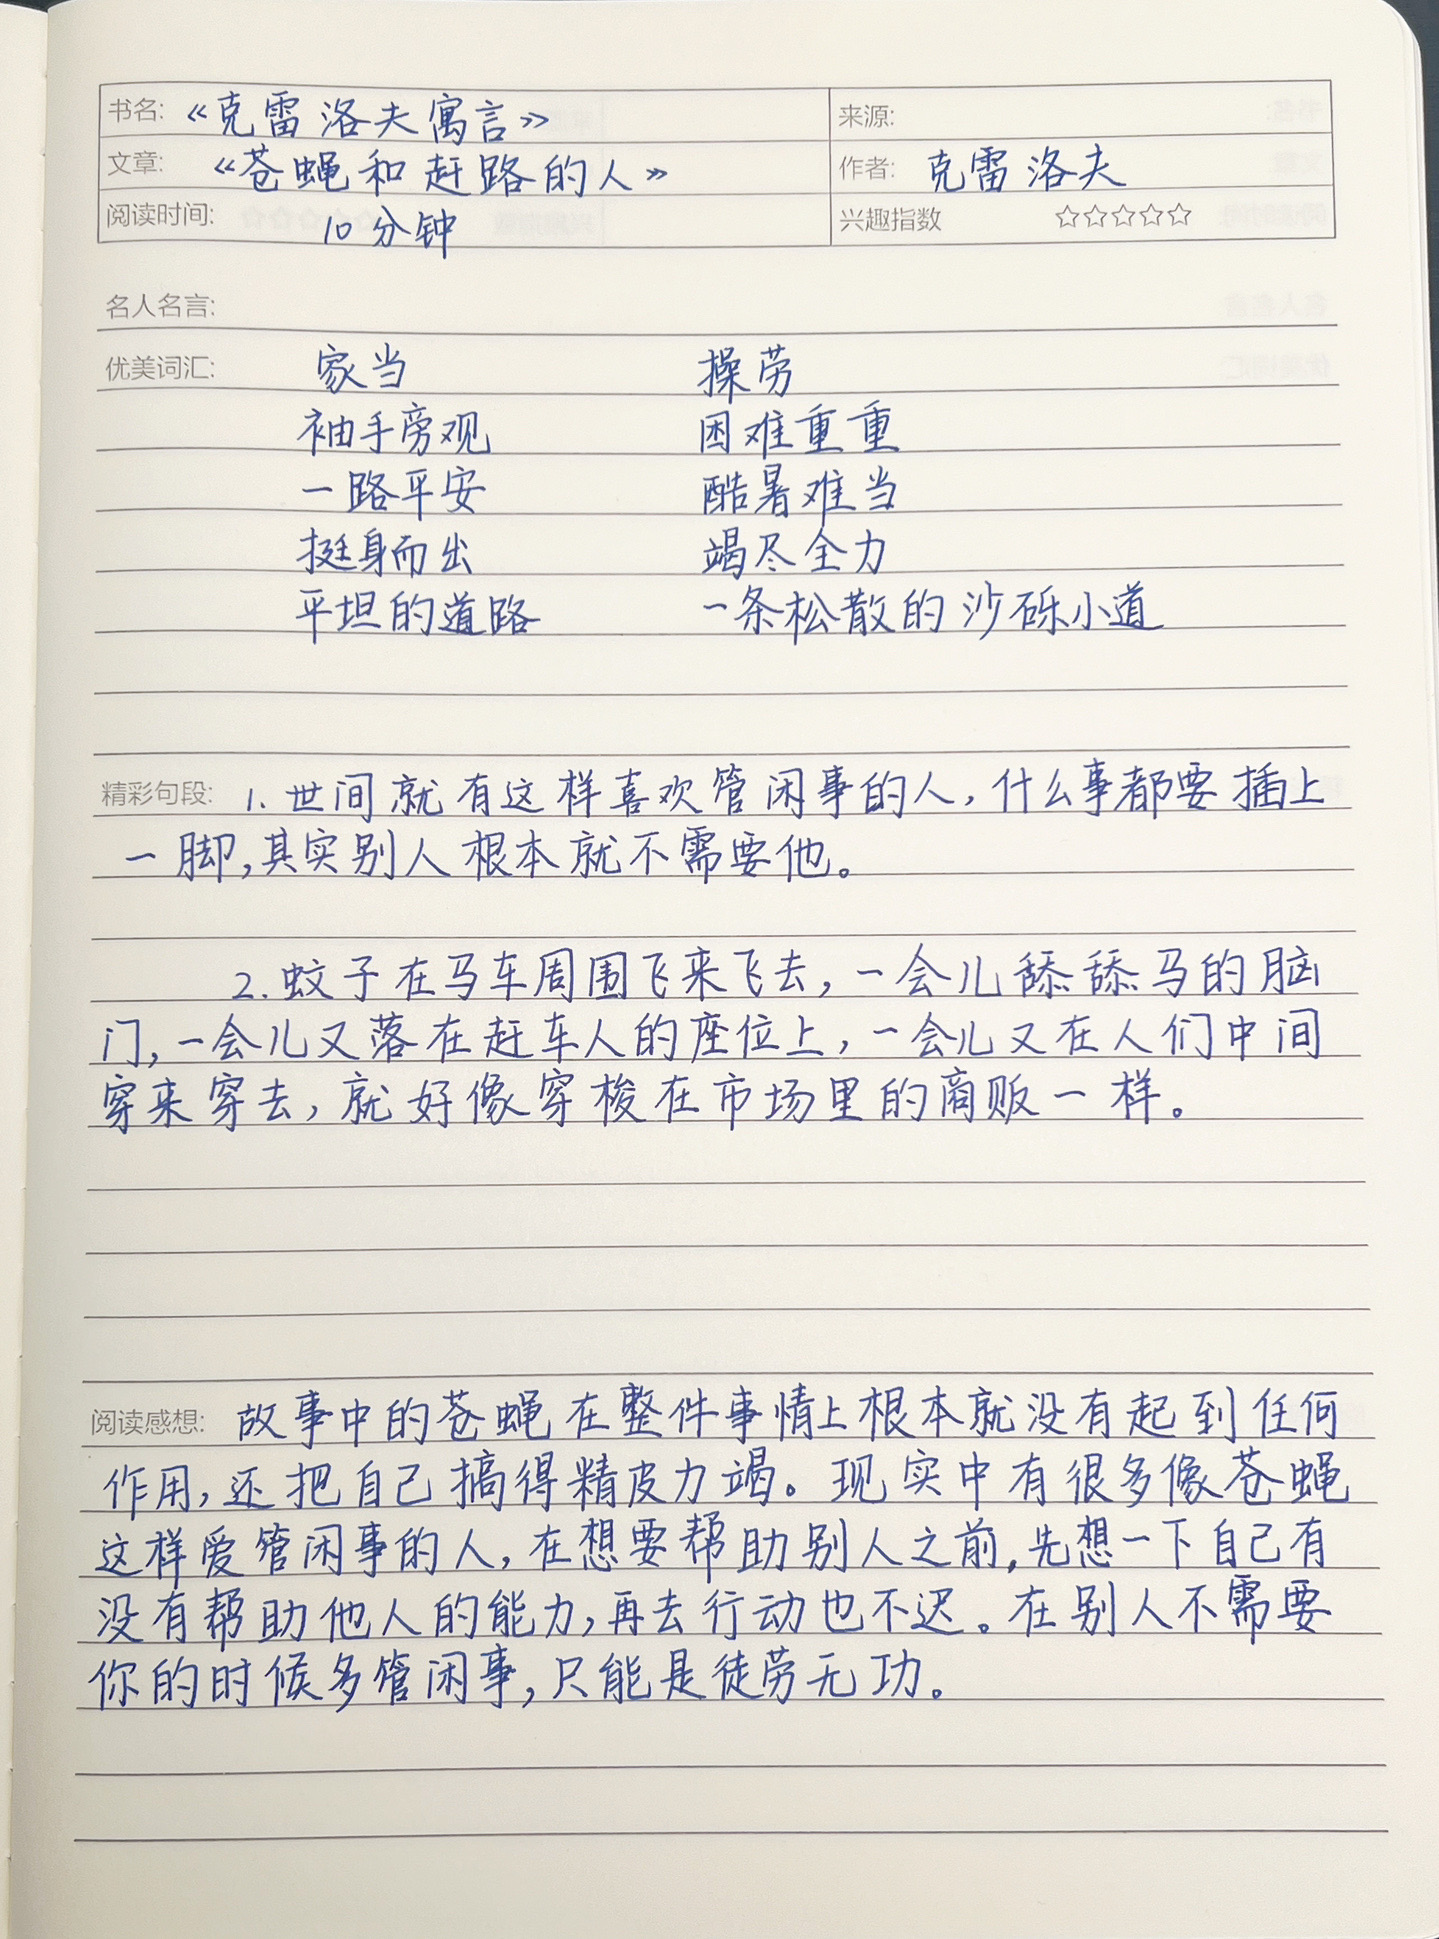 书名: 《克雷洛夫寓言》 来源:
文章: 《苍蝇和赶路的人》 作者: 克雷洛夫
阅读时间: 10分钟 兴趣指数 ☆☆☆☆☆
名人名言:
优美词汇: 家当 操劳
袖手旁观 困难重重
一路平安 酷暑难当
挺身而出 竭尽全力
平坦的道路 一条松散的沙砾小道
精彩句段: 1. 世间就有这样喜欢管闲事的人，什么事都要插上
一脚，其实别人根本就不需要他。
2. 蚊子在马车周围飞来飞去，一会儿舔舔马的脑
门，一会儿又落在赶车人的座位上，一会儿又在人们中间
穿来穿去，就好像穿梭在市场里的商贩一样。
阅读感想: 故事中的苍蝇在整件事情上根本就没有起到任何
作用，还把自己搞得精皮力竭。现实中有很多像苍蝇
这样爱管闲事的人，在想要帮助别人之前，先想一下自己有
没有帮助他人的能力，再去行动也不迟。在别人不需要
你的时候多管闲事，只能是徒劳无功。